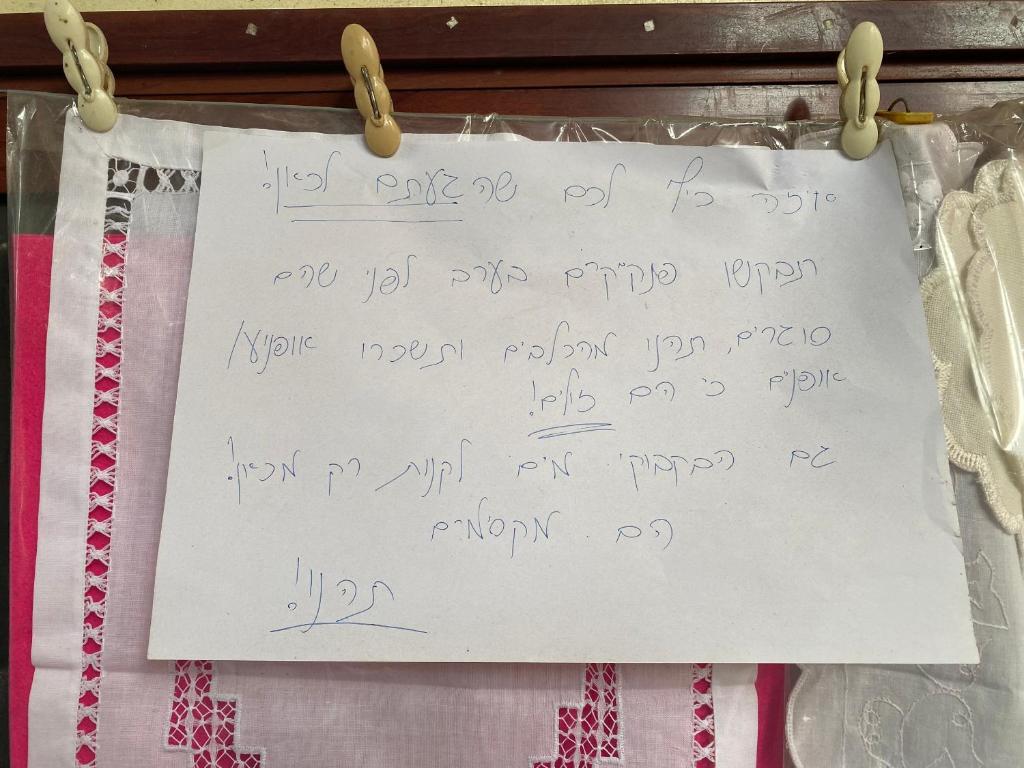 איזה כיף לכם שהגעתם לכאן!
תבקשו פנקייקים בערב לפני שהם
סוגרים, תהנו מהכלבים ותשכרו אופנוע/
אופניים כי הם זולים!
גם הבקבוקי מים לקנות רק מכאן!
הם מקסימים
תהנו!